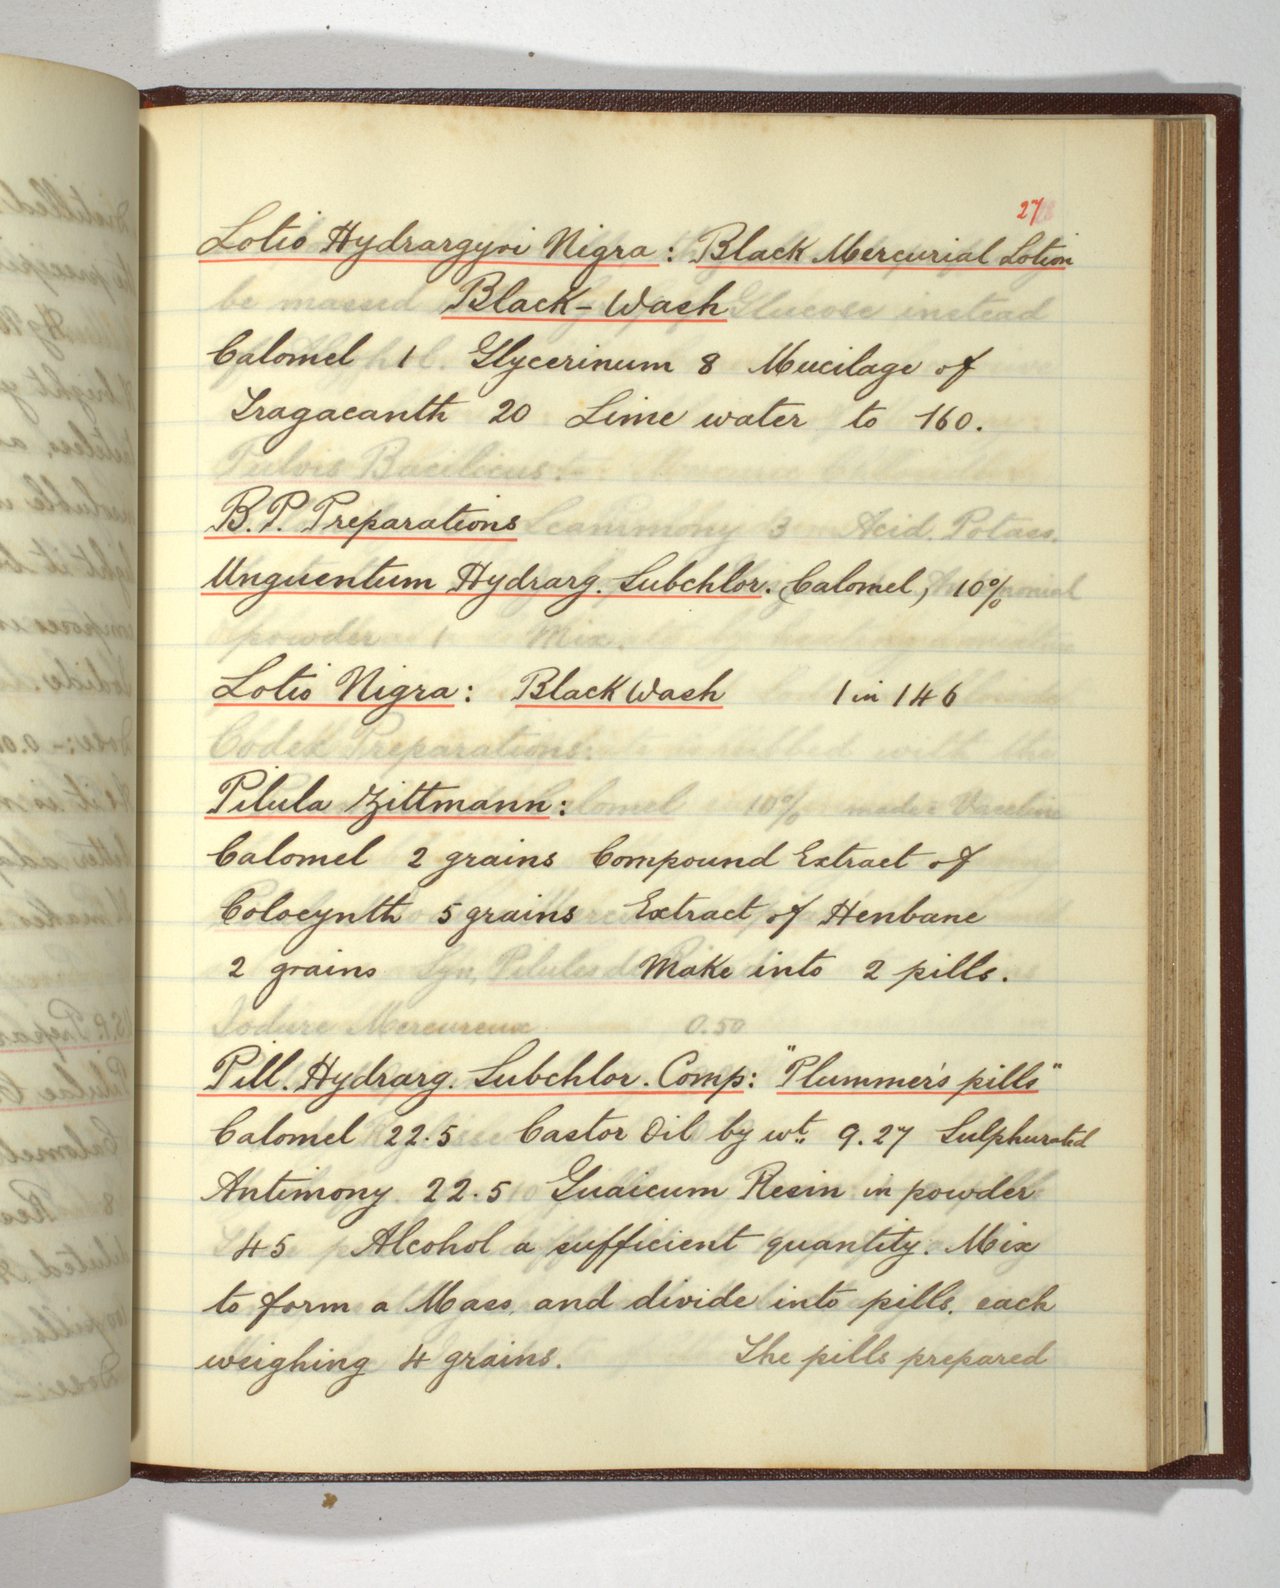 27
Lotio Hydrargyri Nigra: Black Mercurial Lotion
Black-Wash
Calomel 1 Glycerinum 8 Mucilage of
Tragacanth 20 Lime water to 160.
B.P. Preparations
Unguentum Hydrarg. Subchlor. (Calomel, 10%
Lotio Nigra: Black Wash 1 in 146
Pilula Zittmann:
Calomel 2 grains Compound Extract of
Colocynth 5 grains Extract of Henbane
2 grains Make into 2 pills.
Pill. Hydrarg. Subchlor. Comp: "Plummer's pills"
Calomel 22.5 Castor Oil by wt. 9.27 Sulphurated
Antimony 22.5 Guaicum Resin in powder
45 Alcohol a sufficient quantity. Mix
to form a Mass and divide into pills, each
weighing 4 grains. The pills prepared